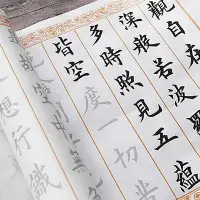 觀自在
深般若波羅
多時照見五蘊
皆空度一切
想行識